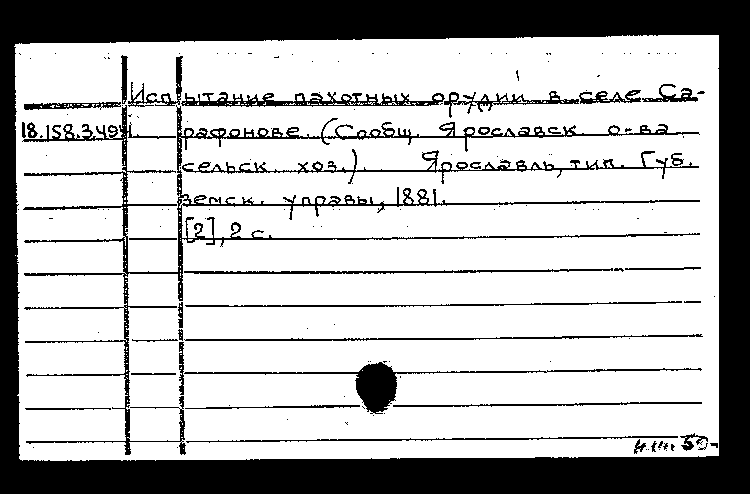 Испытание пахотных орудий в селе Са-
18.158.3.494. рафонове. (Сообщ. Ярославск. о-ва
сельск. хоз.). Ярославль, тип. Губ.
земск. управы, 1881.
[2], 2 с.